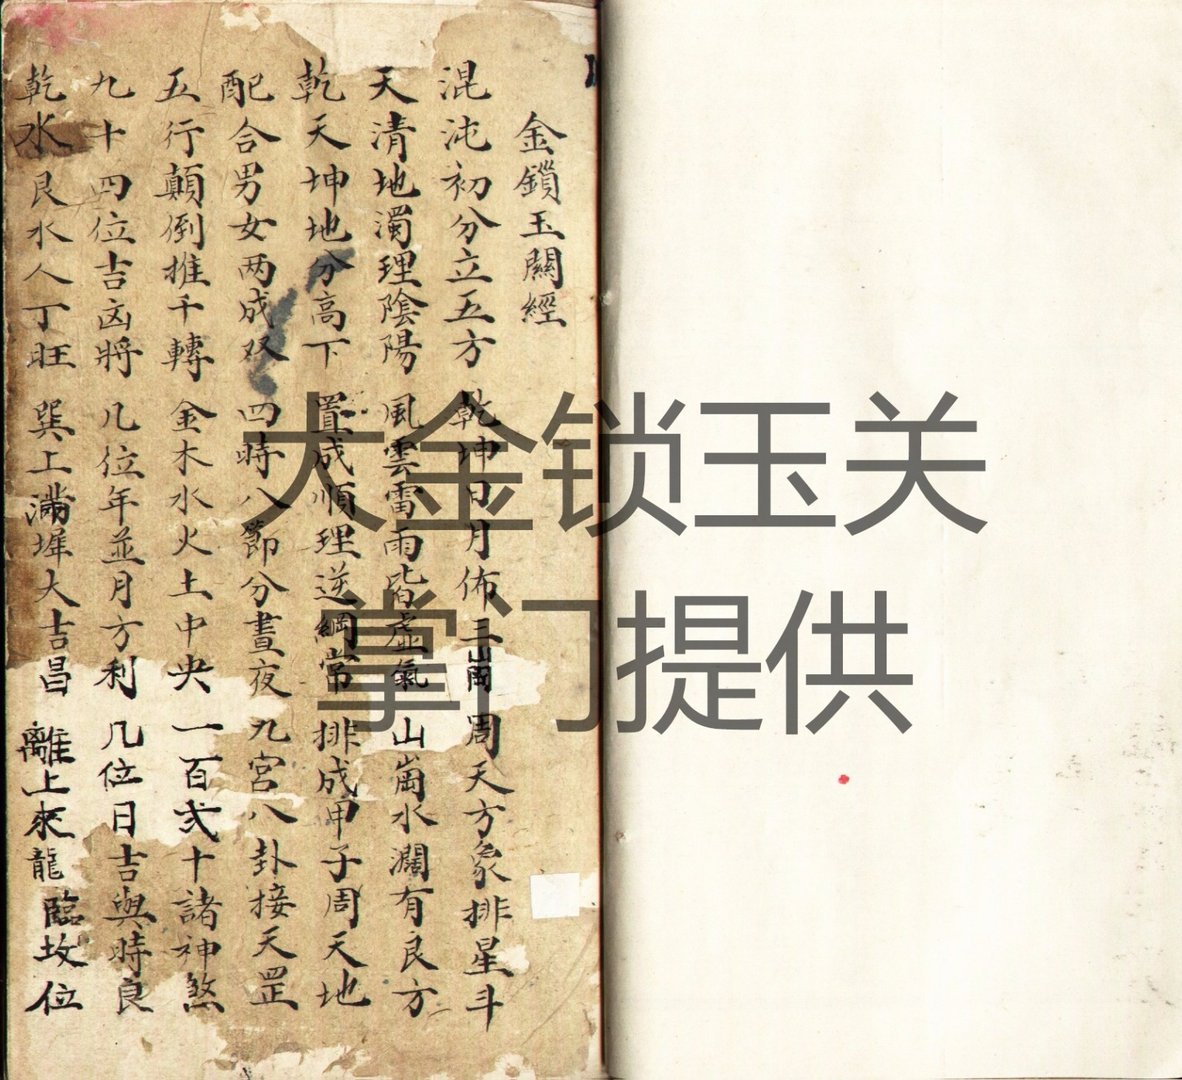 金鎖玉關經
混沌初分立五方 乾坤日月佈三崗 周天方象排星斗
天清地濁理陰陽 風雲雷雨皆虛氣 山崗水濶有良方
乾天坤地分高下 置成順理逆綱常 排成甲子周天地
配合男女两成双 四時八節分晝夜 九宮八卦接天罡
五行顛倒推千轉 金木水火土中央 一百弍十諸神煞
九十四位吉凶將 几位年並月方利 几位日吉與時良
乾水艮水人丁旺 巽上滿墀大吉昌 離上來龍臨坟位
大金锁玉关
掌门提供